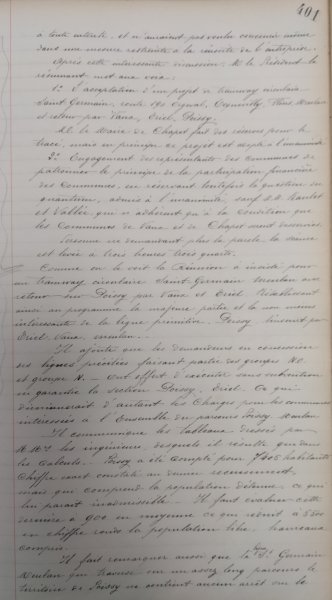 401
à toute entente, et n'auraient pas voulu concourir même
dans une mesure restreinte à la réussite de l'entreprise.
Après cette intéressante discussion, M. le Président la
résumant met aux voix:
1º L'acceptation d'un projet de tramway circulaire
Saint Germain, route 190, Orgeval, Ecquevilly, Flins, Meulan
et retour par Vaux, Triel, Poissy.
M. le Maire de Chapet fait des réserves pour le
tracé, mais en principe ce projet est accepté à l'unanimité
2º Engagement des représentants des Communes de
patronner le principe de la participation financière
des Communes, en réservant toutefois la question du
quantum, admis à l'unanimité, sauf M.M.
et Vallée, qui n'adhèrent qu'à la condition que
les Communes de Vaux et de Chapet soient desservies.
Personne ne demandant plus la parole la séance
est levée à trois heures trois quarts.
Comme on le voit la Réunion a insisté pour
un tramway circulaire Saint Germain Meulan avec
retour sur Poissy par Vaux et Triel. Rétablissant
ainsi au programme la majeure partie et la non moins
intéressante de la ligne primitive. Poissy
Triel, Vaux, Meulan.
Il ajoute que les demandeurs en concession
des lignes précitées faisant partie des groupes
et groupe N. ont offert d'exécuter sans subvention
ni garantie la section Poissy, Triel. Ce qui
diminuerait d'autant les Charges pour les communes
intéressées à l'Ensemble du parcours Poissy Meulan
Il communique les tableaux dressés par
M.M. les ingénieurs desquels il résulte que dans
les Calculs. Poissy a été compté pour 7405 habitants
Chiffre exact constaté au dernier recensement,
mais qui comprend la population détenue, ce qui
lui paraît inadmissible. Il faut évaluer cette
dernière à 900 en moyenne ce qui réduit à
en chiffre ronds la population libre, hameaux
compris.
Il fait remarquer aussi que la ligne St Germain
Meulan qui traverse sur un assez long parcours le
territoire de Poissy ne contient aucun arrêt sur le